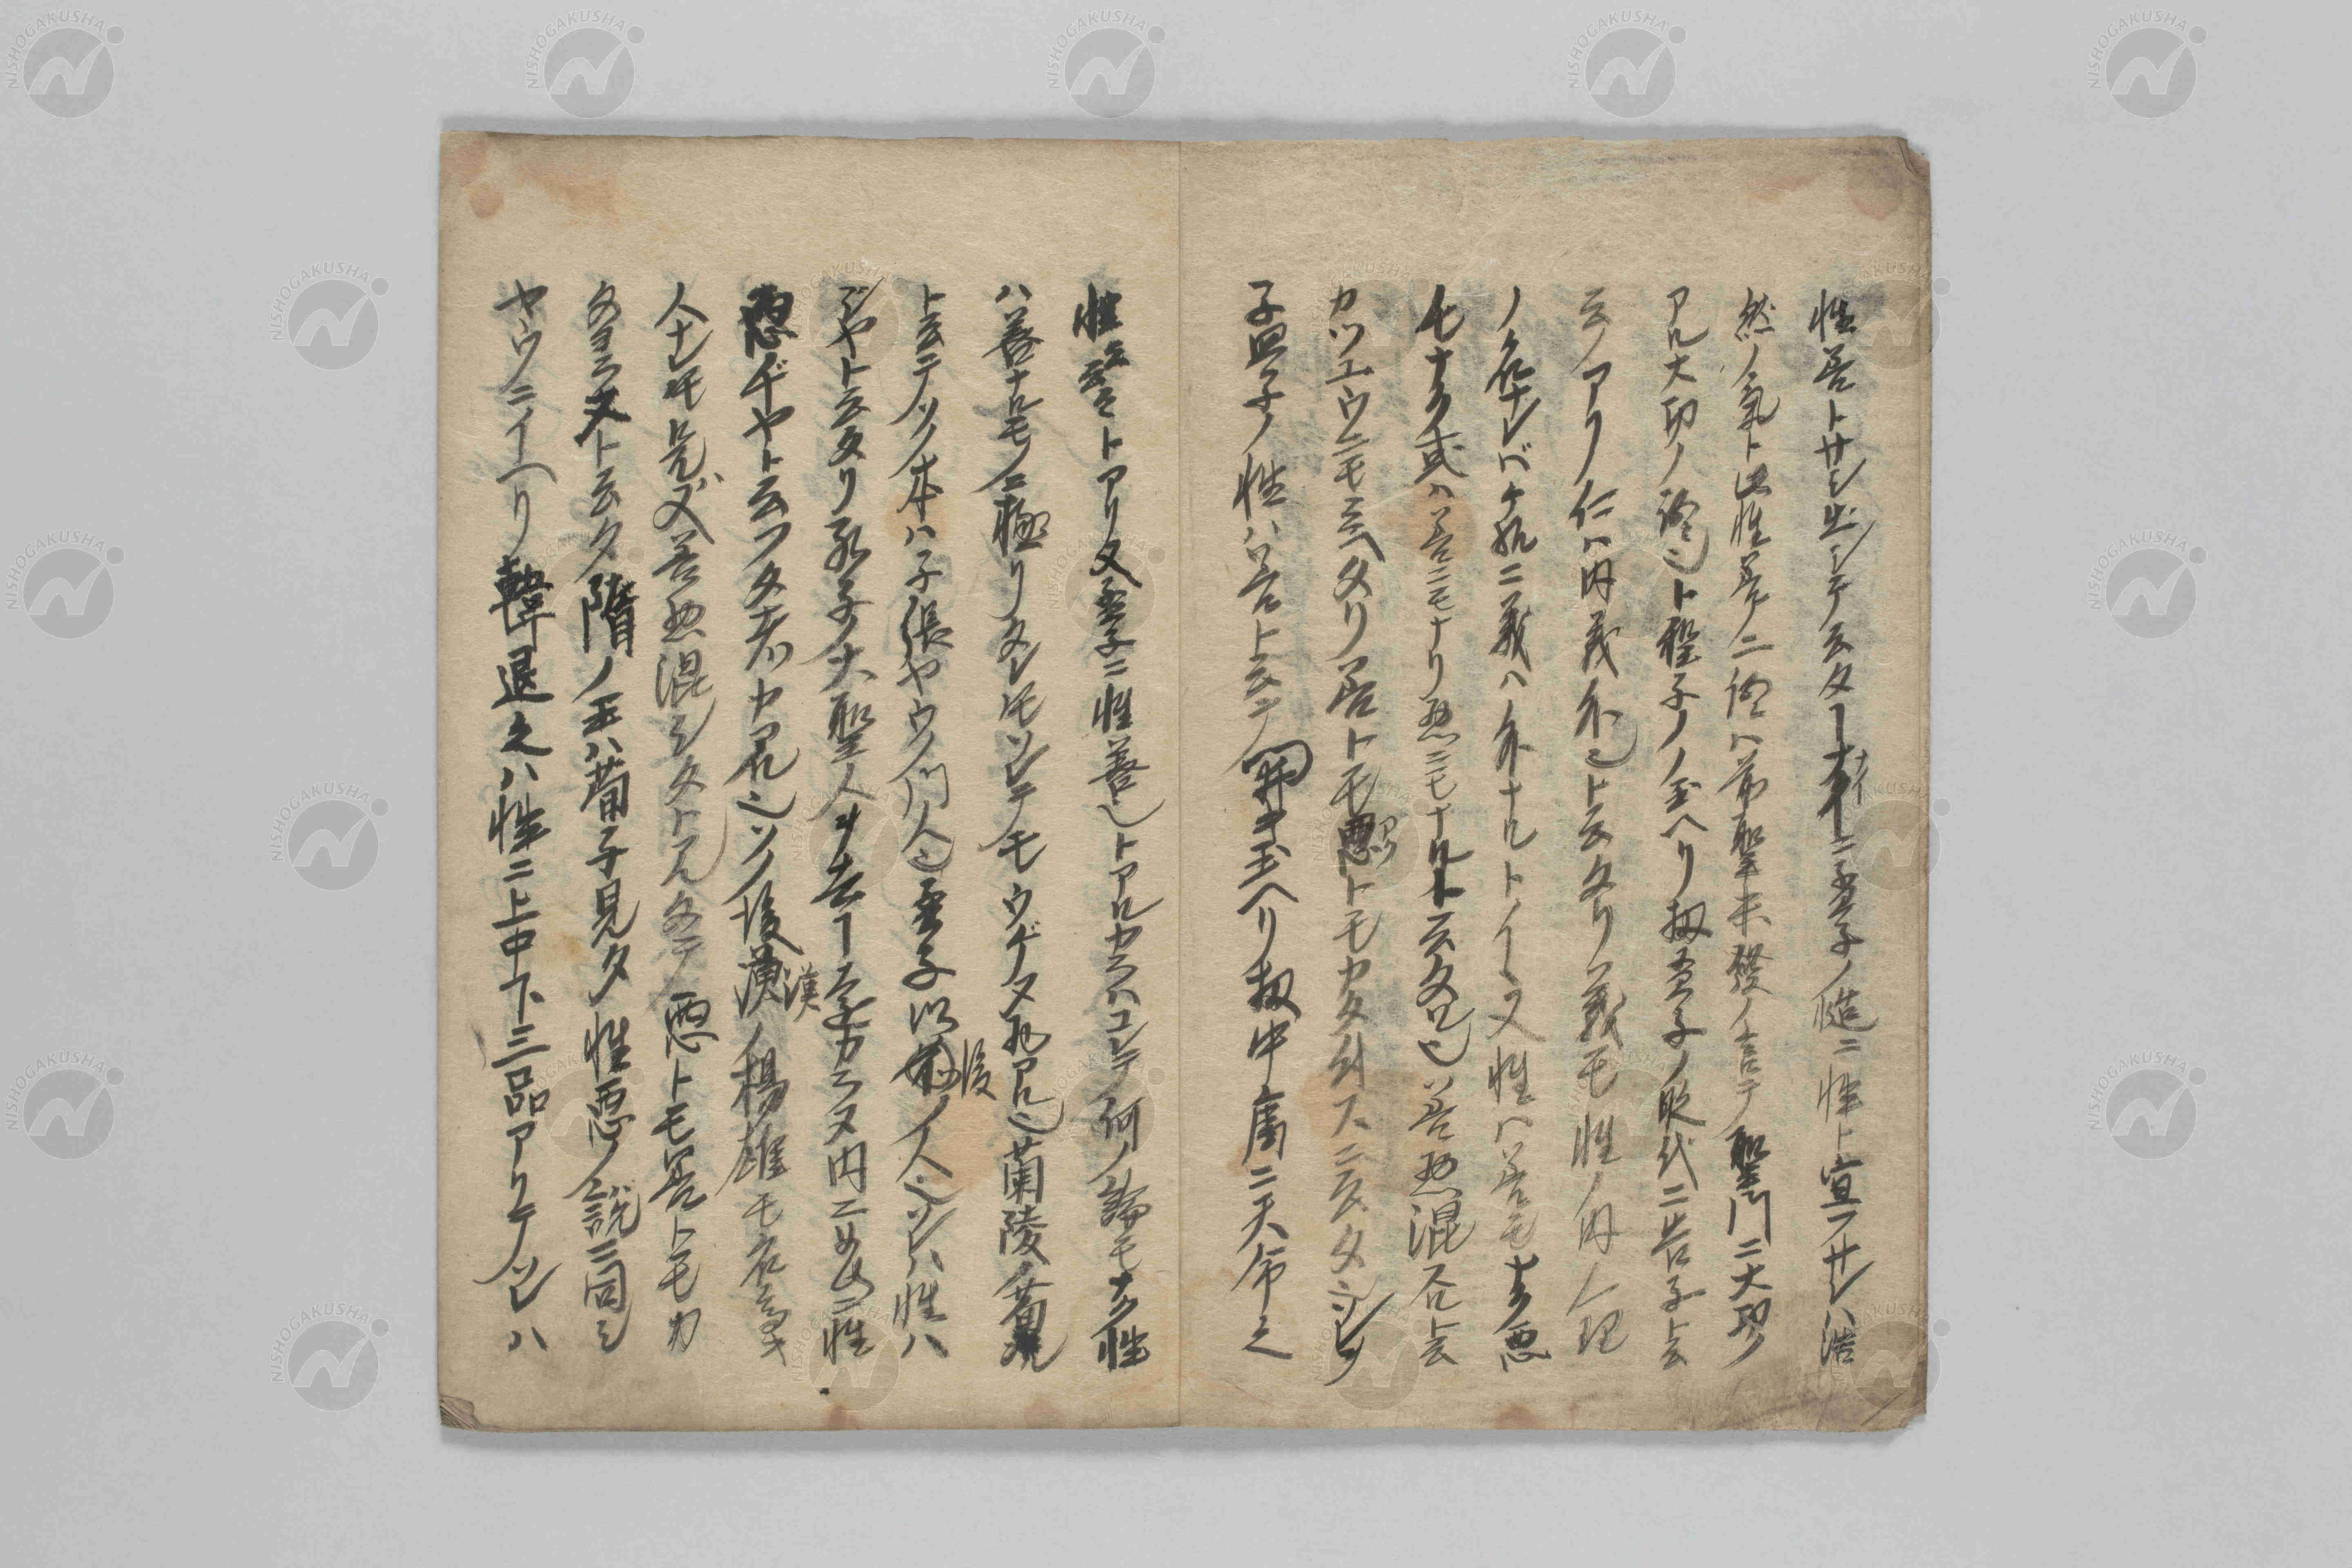 性善トサシ出シテ云タヿナイニ孟子ノ慥ニ性ト宣フサレハ浩
然ノ氣ト此性善ノ二語ハ前聖未發ノ言テ聖門ニ大功ノ
アル大切ノ語也ト程子ノ玉ヘリ扨孟子ノ時代ニ告子ト云
モノアリ仁ハ内義ハ外也ト云タリ義モ性ノ内ノ理
ノ名ナレバケ様ニ義ハ外ナルトイヽ又性ハ善モナク悪
モナク或ハ善ニモナリ悪ニモナルト云タ也善悪混合ト云
カツエウニモ云ヘタリ善トモ悪トモカタ付ズニ云タ也ソレヲ
孟子ノ性ハ善ト云テ闢キ玉ヘリ扨中庸ニ天命之
性云々トアリ又孟子ニ性善也トアルカラハコレテ何ノ論モナク性
ハ善ナルモノニ極リタレトモソレテモウゲタ砲アル也蘭陵ノ荀況
ト云テソノ本ハ子張ヤウノ門人也孟子以後ノ人也ソレハ性ハ
ヂヤト云タリ孔子ノ大聖人ヲ去ヿ遠カラヌ内ニはや性
悪ヂヤト云フタ者カアル也ソノ後漢ノ楊雄モ名高キ
人ナレトモ是ハ又善悪混シタト云タテ悪トモ善トモカ
タヨラヌト云タ隋ノ王ハ荀子見タ性悪ノ説ニ同シ
ヤウニイヘリ韓退之ハ性ニ上中下三品アリテソレハ